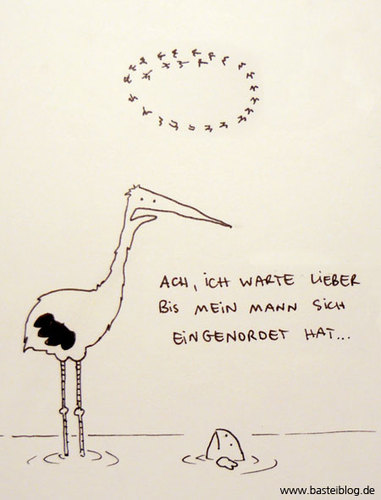 ACH, ICH WARTE LIEBER
BIS MEIN MANN SICH
EINGENORDET HAT...
www.basteiblog.de